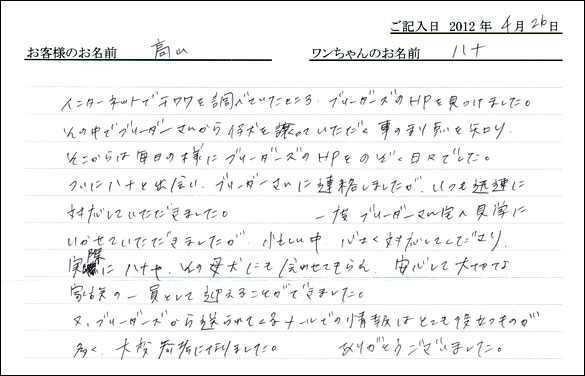 ご記入日 2012年 4月 26日
お客様のお名前 高山 ワンちゃんのお名前 ハナ
インターネットでチワワを調べていたところ、ブリーダーズのHPを見つけました。
その中でブリーダーさんから仔犬を譲っていただく事のより点を知り、
そこからは毎日の様にブリーダーズのHPをのぞく日々でした。
ついにハナと出会い、ブリーダーさんに連絡しましたが、いつも迅速に
対応していただきました。 一度ブリーダーさん宅へ見学に
いかせていただきましたが、お忙しい中、心よく対応してくださり、
実際にハナや、その母犬にも会わせてもらえ、安心して大切な
家族の一員として迎えることができました。
又、ブリーダーズから送られてくるメールでの情報はとても役立つものが
多く、大変参考になりました。 ありがとうございました。